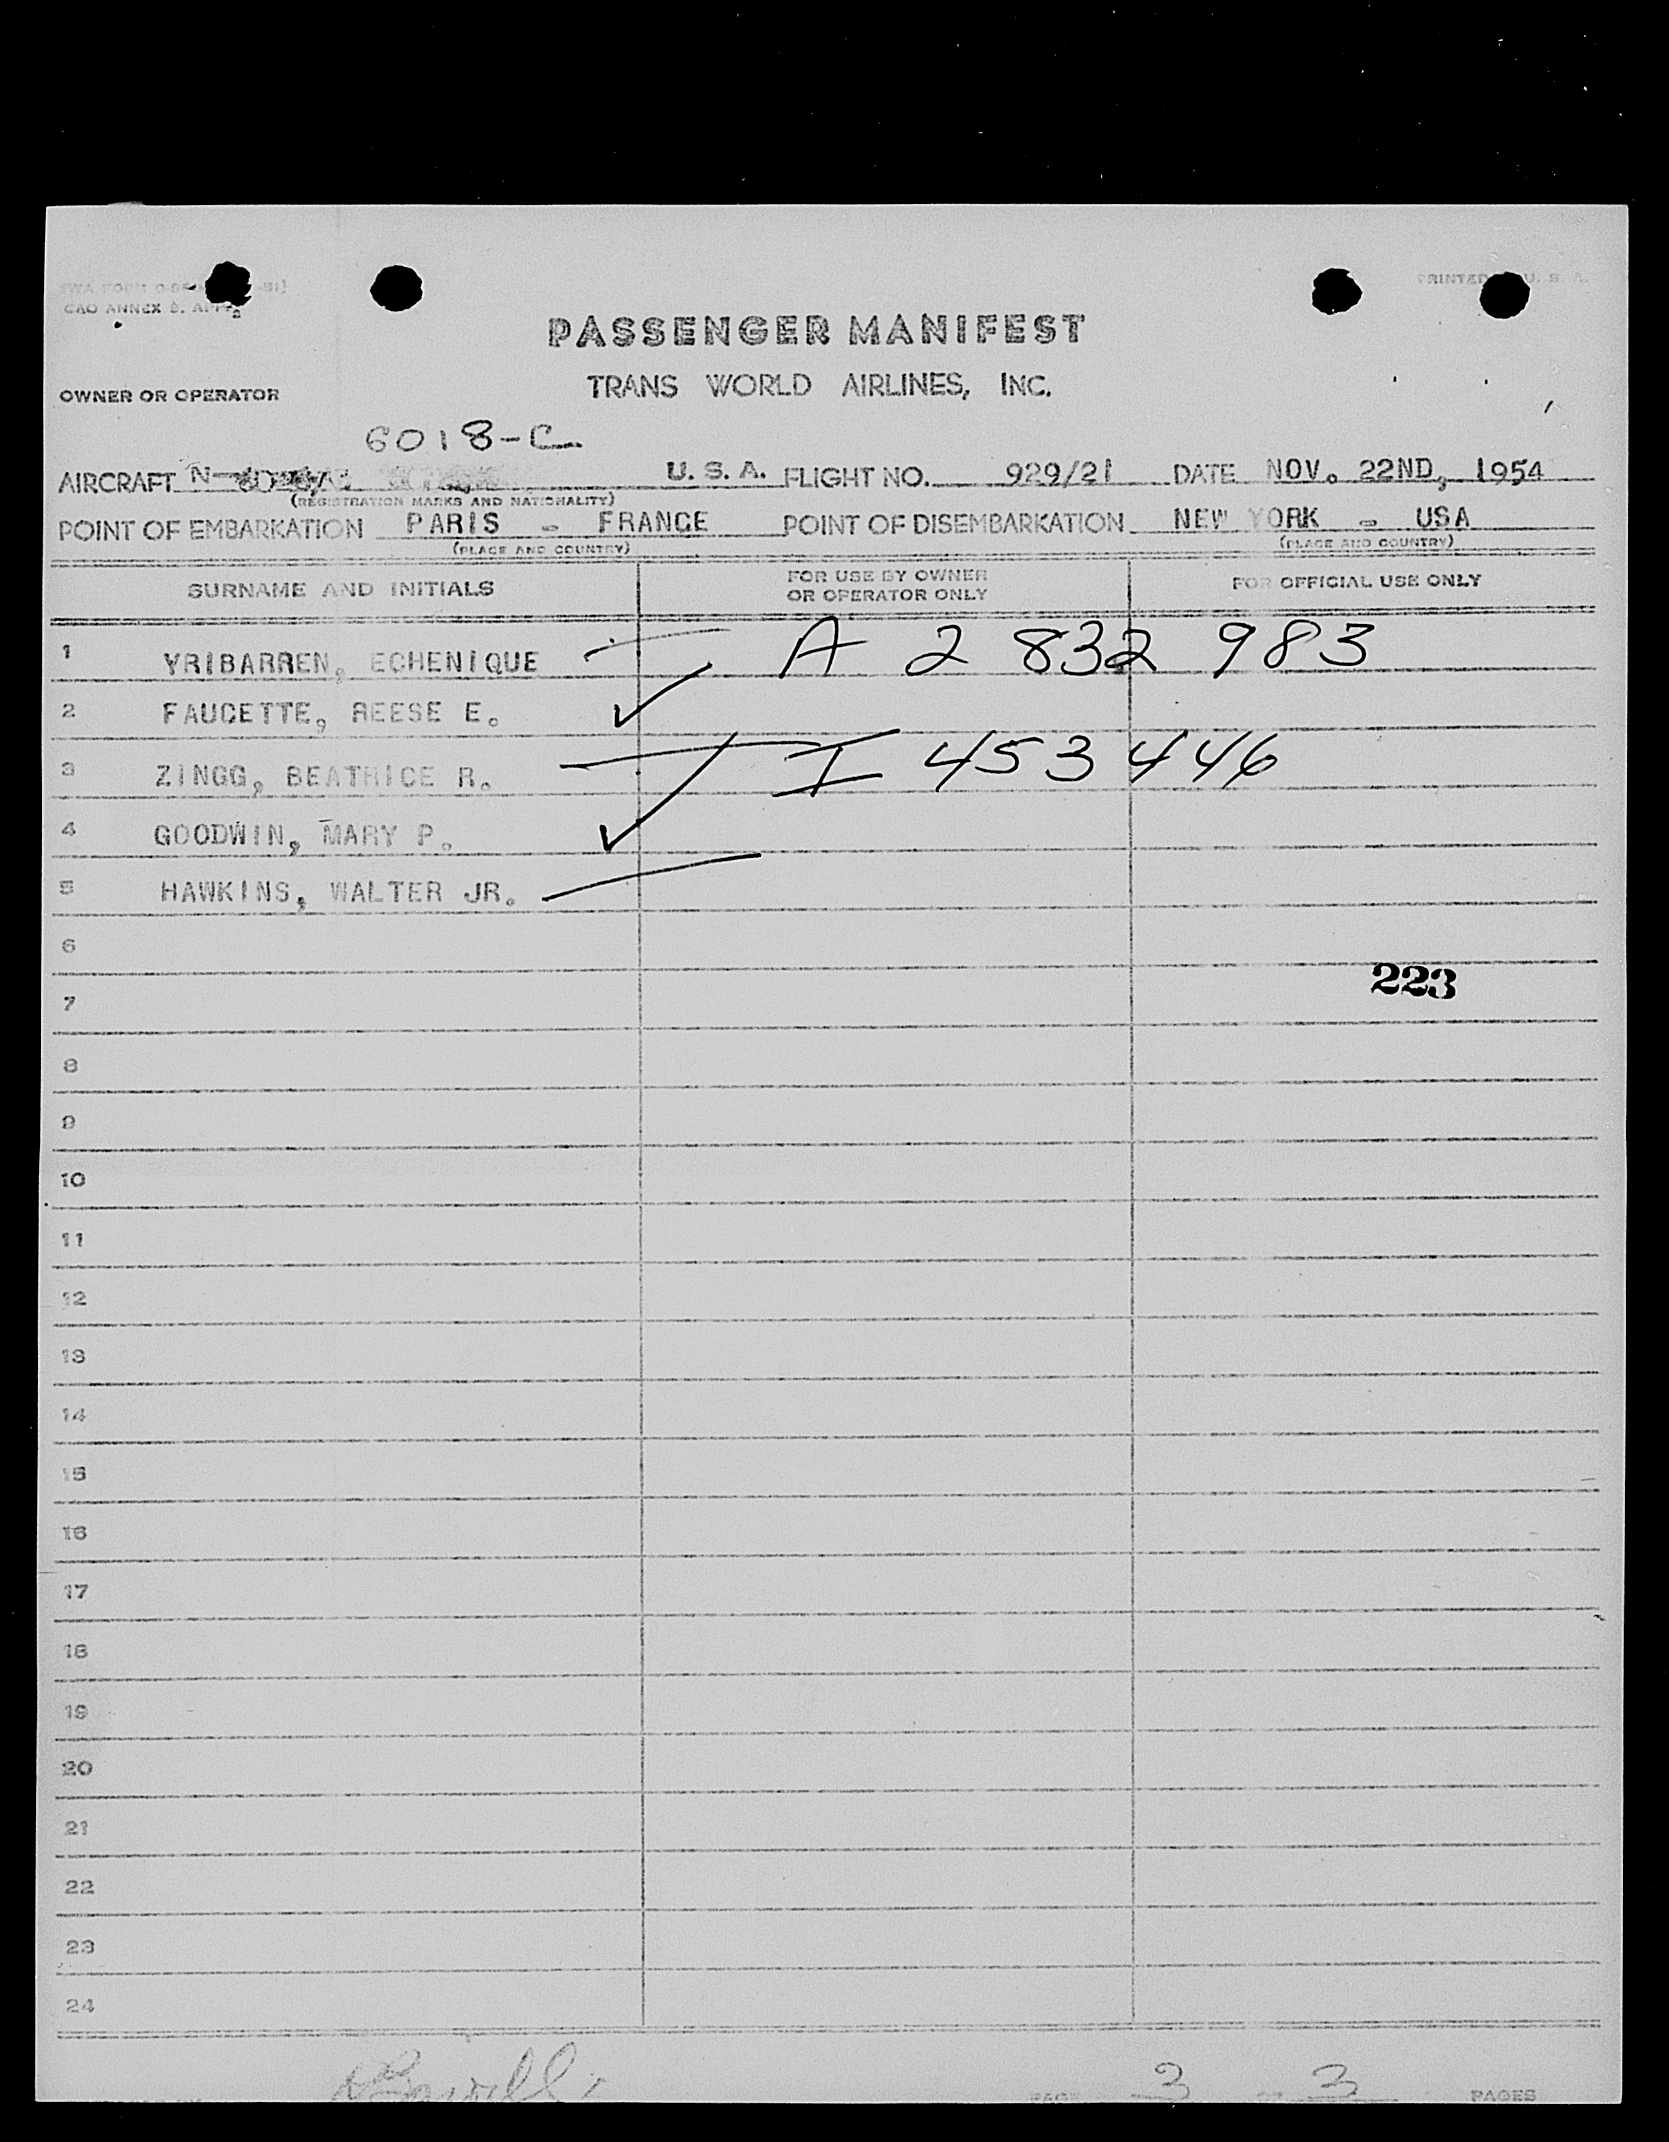 PRINTED U. S. A.
CAO ANNEX
PASSENGER MANIFEST
OWNER OR OPERATOR TRANS WORLD AIRLINES, INC.
6018-C
AIRCRAFT N- U. S. A. FLIGHT NO. 929/21 DATE NOV. 22ND, 1954
(REGISTRATION MARKS AND NATIONALITY)
POINT OF EMBARKATION PARIS - FRANCE POINT OF DISEMBARKATION NEW YORK - USA
(PLACE AND COUNTRY) (PLACE AND COUNTRY)
SURNAME AND INITIALS FOR USE BY OWNER OR OPERATOR ONLY FOR OFFICIAL USE ONLY
1 YRIBARREN, ECHENIQUE A 2 832 983
2 FAUCETTE, REESE E. ✓
3 ZINGG, BEATRICE R. I 453 446
4 GOODWIN, MARY P. ✓
5 HAWKINS, WALTER JR.
6
223
7
8
9
10
11
12
13
14
15
16
17
18
19
20
21
22
23
24
PAGE 3 OF 3 PAGES